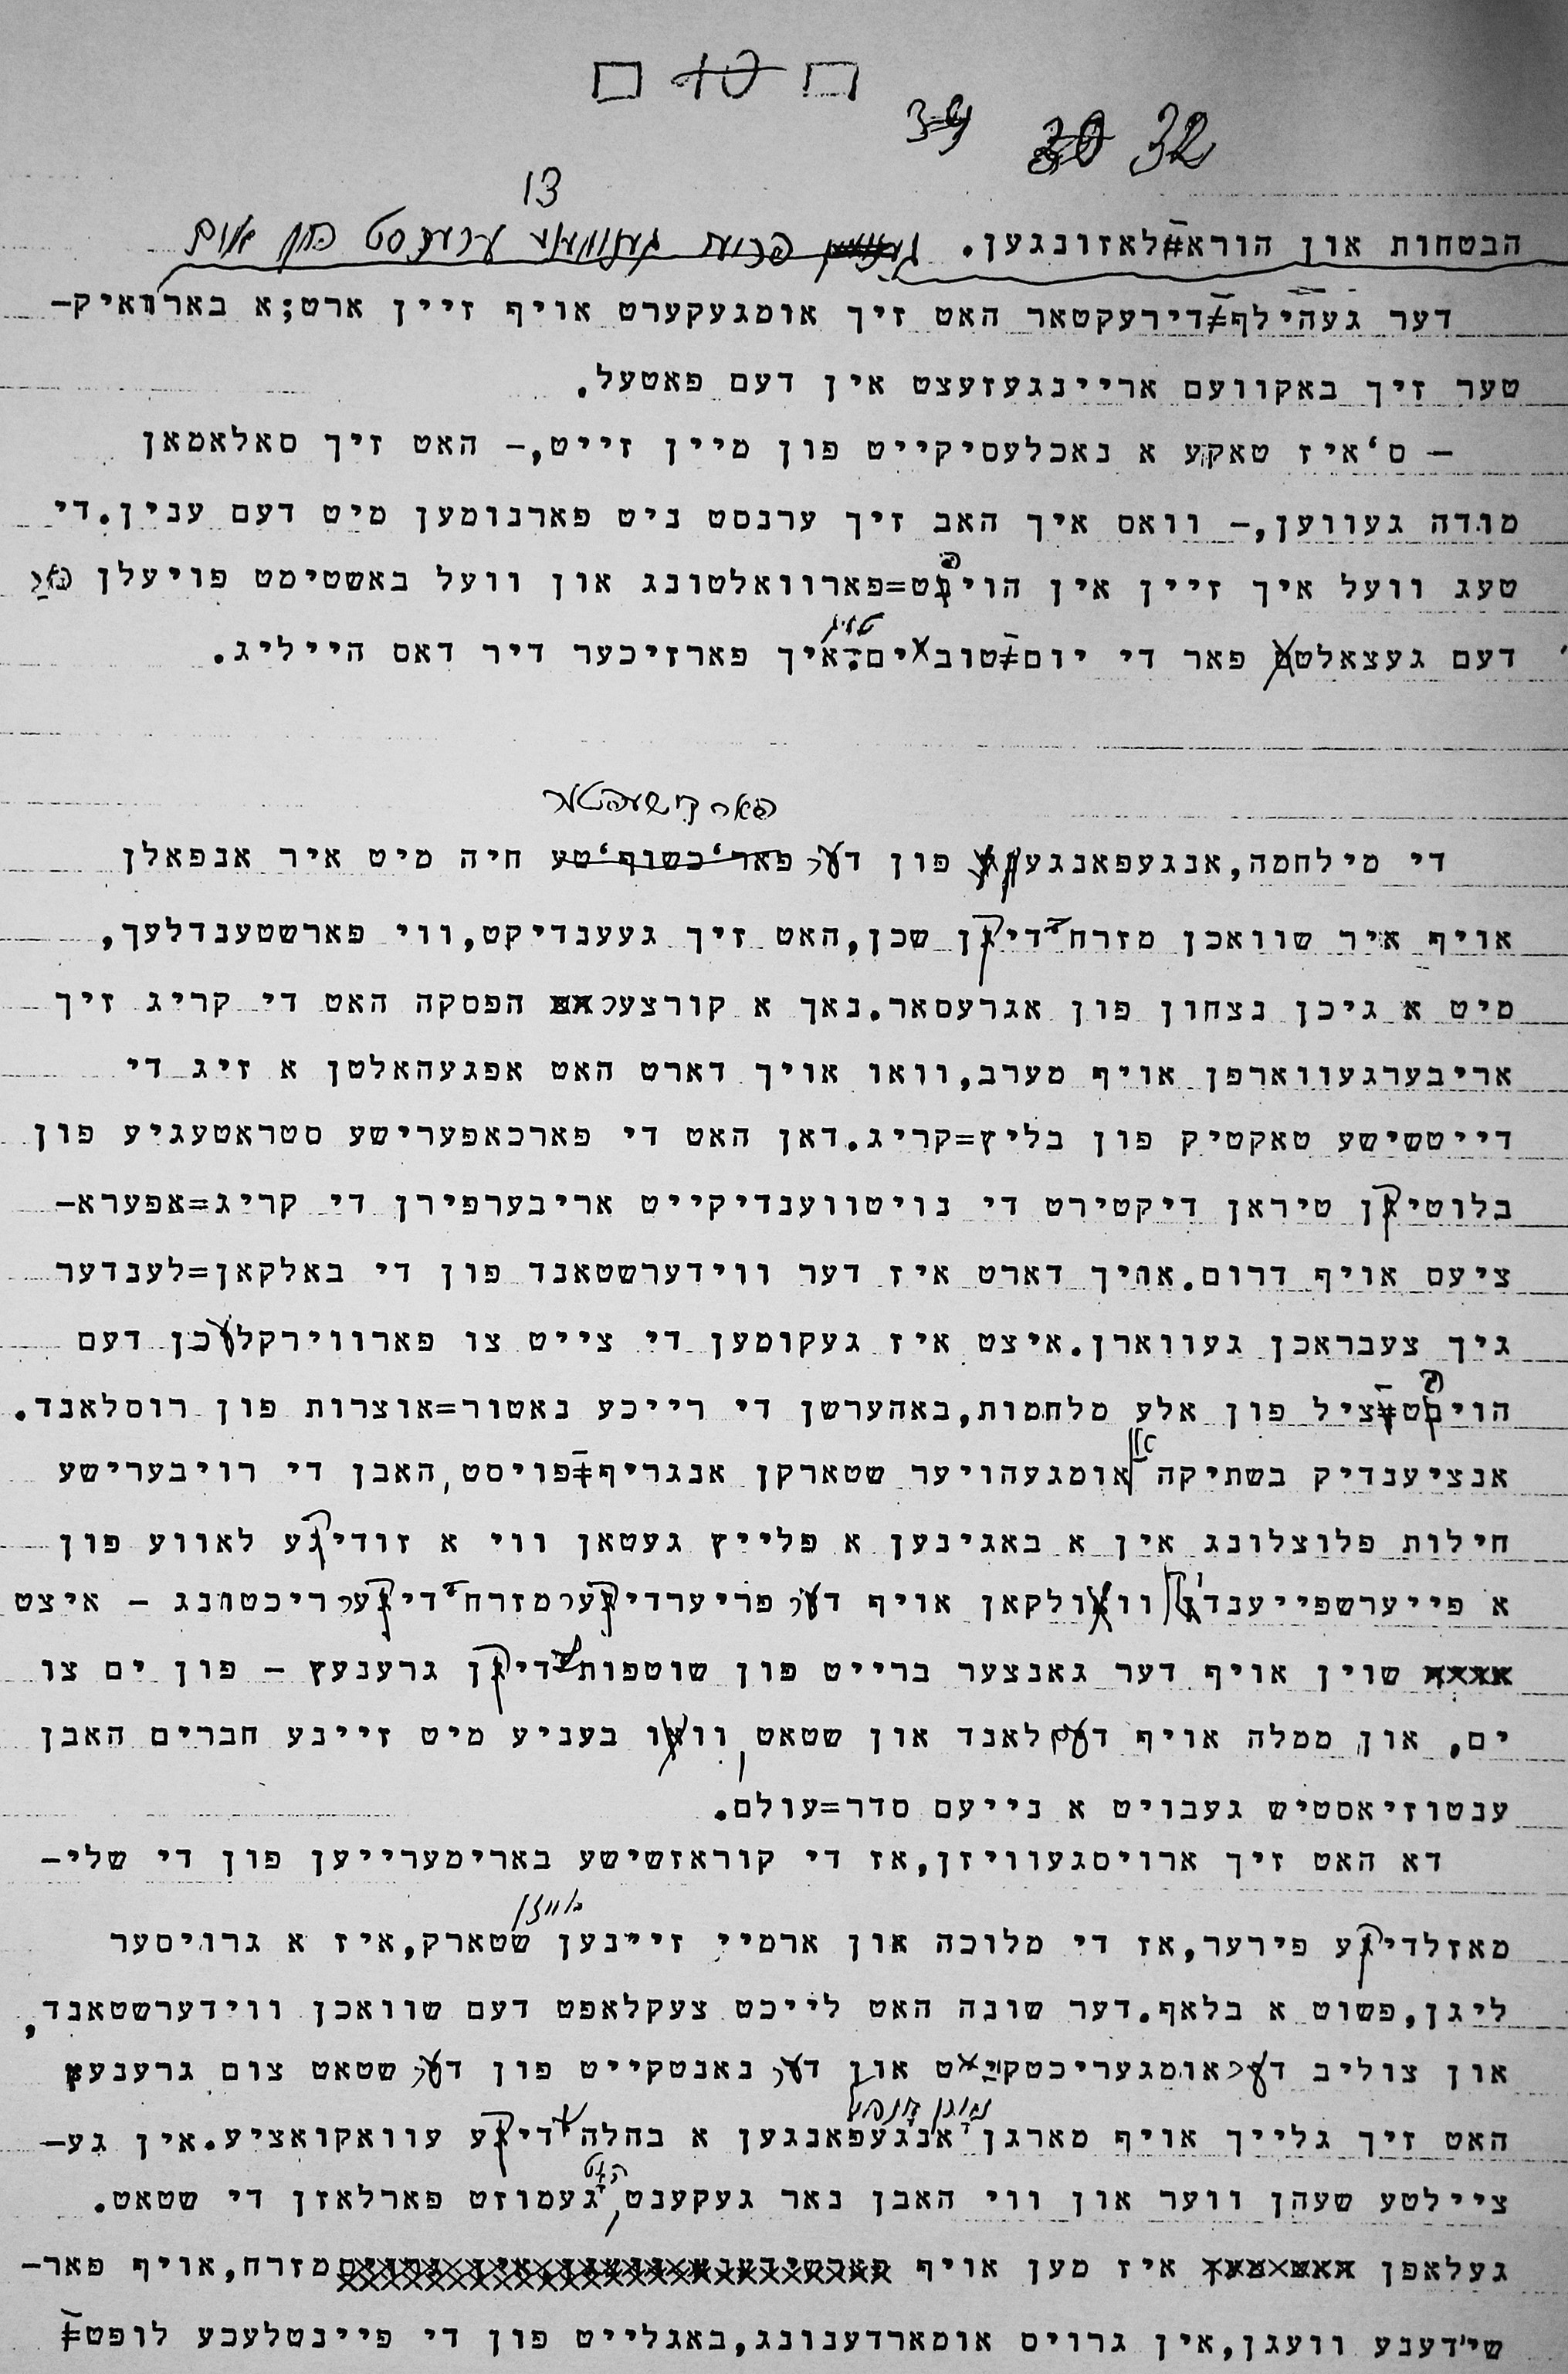 □ 40 □
34 30 32
13
הבטחות און הוראַ־לאזונגען.
דער געהילף־דירעקטאר האט זיך אומגעקערט אויף זיין ארט;א בארואיק-
טער זיך באקוועם אריינגעזעצט אין דעם פאטעל.
— ס'איז טאקע א נאכלעסיקייט פון מיין זייט,- האט זיך סאלאמאן
מודה געווען,- וואס איך האב זיך ערנסט ניט פארנומען מיט דעם ענין.די
טעג וועל איך זיין אין הויפט=פארוואלטונג און וועל באשטימט פויעלן
דעם געצאלטס פאר די יום־טובים.איך פארזיכער דיר דאס הייליג.
פארכישופטער
די מילחמה,אנגעפאנגען פון דער פאר'כשוף'טע חיה מיט איר אנפאלן
אויף איר שוואכן מזרח־דיקן שכן,האט זיך געענדיקט,ווי פארשטענדלעך,
מיט א גיכן נצחון פון אגרעסאר.נאך א קורצער הפסקה האט די קריג זיך
אריבערגעווארפן אויף מערב,וואו אויך דארט האט אפגעהאלטן א זיג די
דייטשישע טאקטיק פון בליץ=קריג.דאן האט די פארכאפערישע סטראטעגיע פון
בלוטיקן טיראן דיקטירט די נויטווענדיקייט אריבערפירן די קריג=אפערא-
ציעס אויף דרום.אויך דארט איז דער ווידערשטאנד פון די באלקאן=לענדער
גיך צעבראכן געווארן.איצט איז געקומען די צייט צו פארווירקלעכן דעם
הויפט־ציל פון אלע מלחמות,באהערשן די רייכע נאטור=אוצרות פון רוסלאנד.
אנציענדיק בשתיקה אן אומגעהויער שטארקן אנגריף־פויסט,האבן די רויבערישע
חילות פלוצלונג אין א באגינען א פלייץ געטאן ווי א זודיקע לאווע פון
א פייערשפייענדיקן וולקאן אויף דער פריערדיקער מזרח־דיקער ריכטונג — איצט
שוין אויף דער גאנצער ברייט פון שוטפות־דיקן גרענעץ — פון ים צו
ים, און ממלה אויף דעם לאנד און שטאט, וואו בעניע מיט זיינע חברים האבן
ענטוזיאסטיש געבויט א נייעם סדר=עולם.
דא האט זיך ארויסגעוויזן,אז די קוראזשישע בארימערייען פון די שלי-
מאזלדיקע פירער,אז די מלוכה און ארמיי זיינען אזוי שטארק,איז א גרויסער
ליגן,פשוט א בלאף.דער שונה האט לייכט צעקלאפט דעם שוואכן ווידערשטאנד,
און צוליב דער אומגעריכטקייט און דער נאנטקייט פון דער שטאט צום גרענעץ
האט זיך גלייך אויף מארגן אנגעפאנגען א בהלה־דיקע עוואקואציע.אין גע-
ציילטע שעהן ווער און ווי האבן נאר געקענט, האט געמוזט פארלאזן די שטאט.
געלאפן איז מען אויף מזרח,אויף פאר-
שידענע וועגן,אין גרויס אומארדענונג,באגלייט פון די פיינטלעכע לופט־